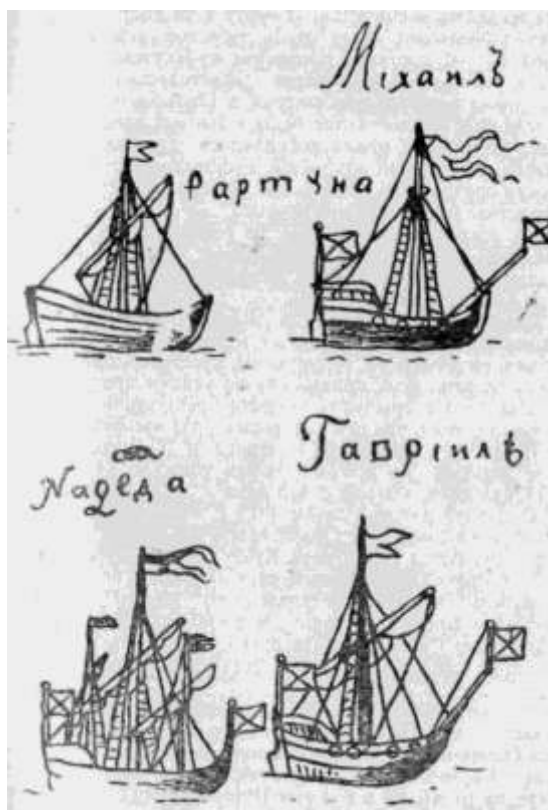 Міхаилъ
Фартуна
Надежда
Гавріилъ